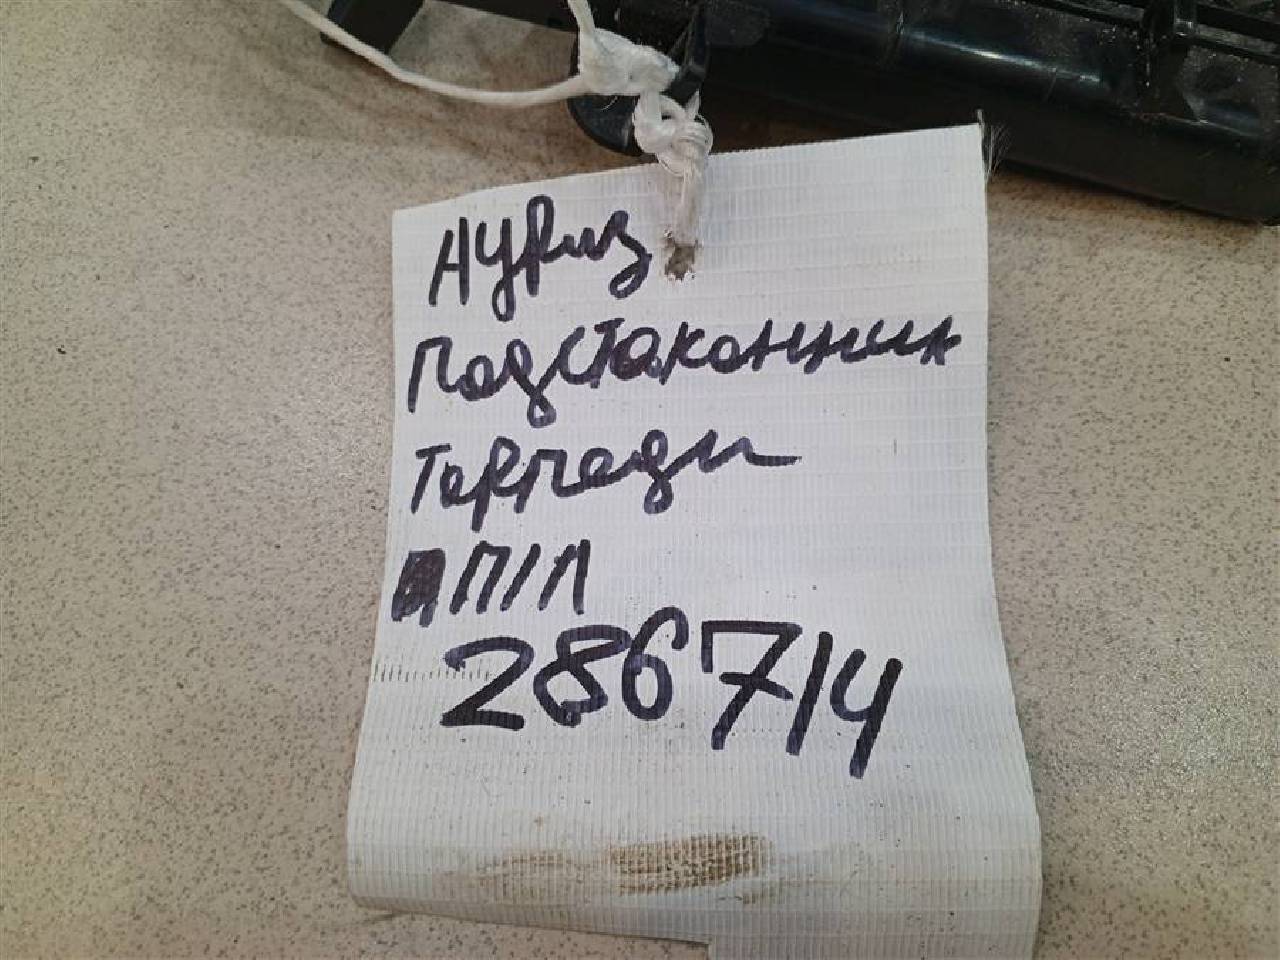 Ауриз
Подстаконник
Торпеды
П/Л
286714